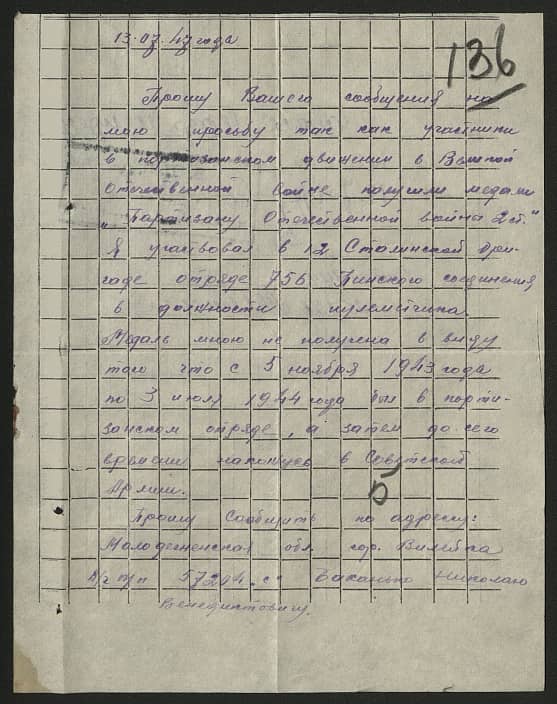 13.07.47 года
136
Прошу Вашего сообщения на
мою просьбу так как участники
в партизанском движении в Великой
Отечественной войне получили медали
"Партизану Отечественной войны 2 ст."
Я участвовал в 12 Сталинской бри-
гаде отряде 756 Пинского соединения
в должности пулеметчика.
Медаль мною не получена в виду
того что с 5 ноября 1943 года
по 3 июля 1944 года был в парти-
занском отряде, а затем до сего
времени нахожусь в Советской
Армии.
Б
Прошу сообщить по адресу:
Молодечненская обл. гор. Вилейка
в/ч п/п 57294 Николаю
Венедиктовичу.